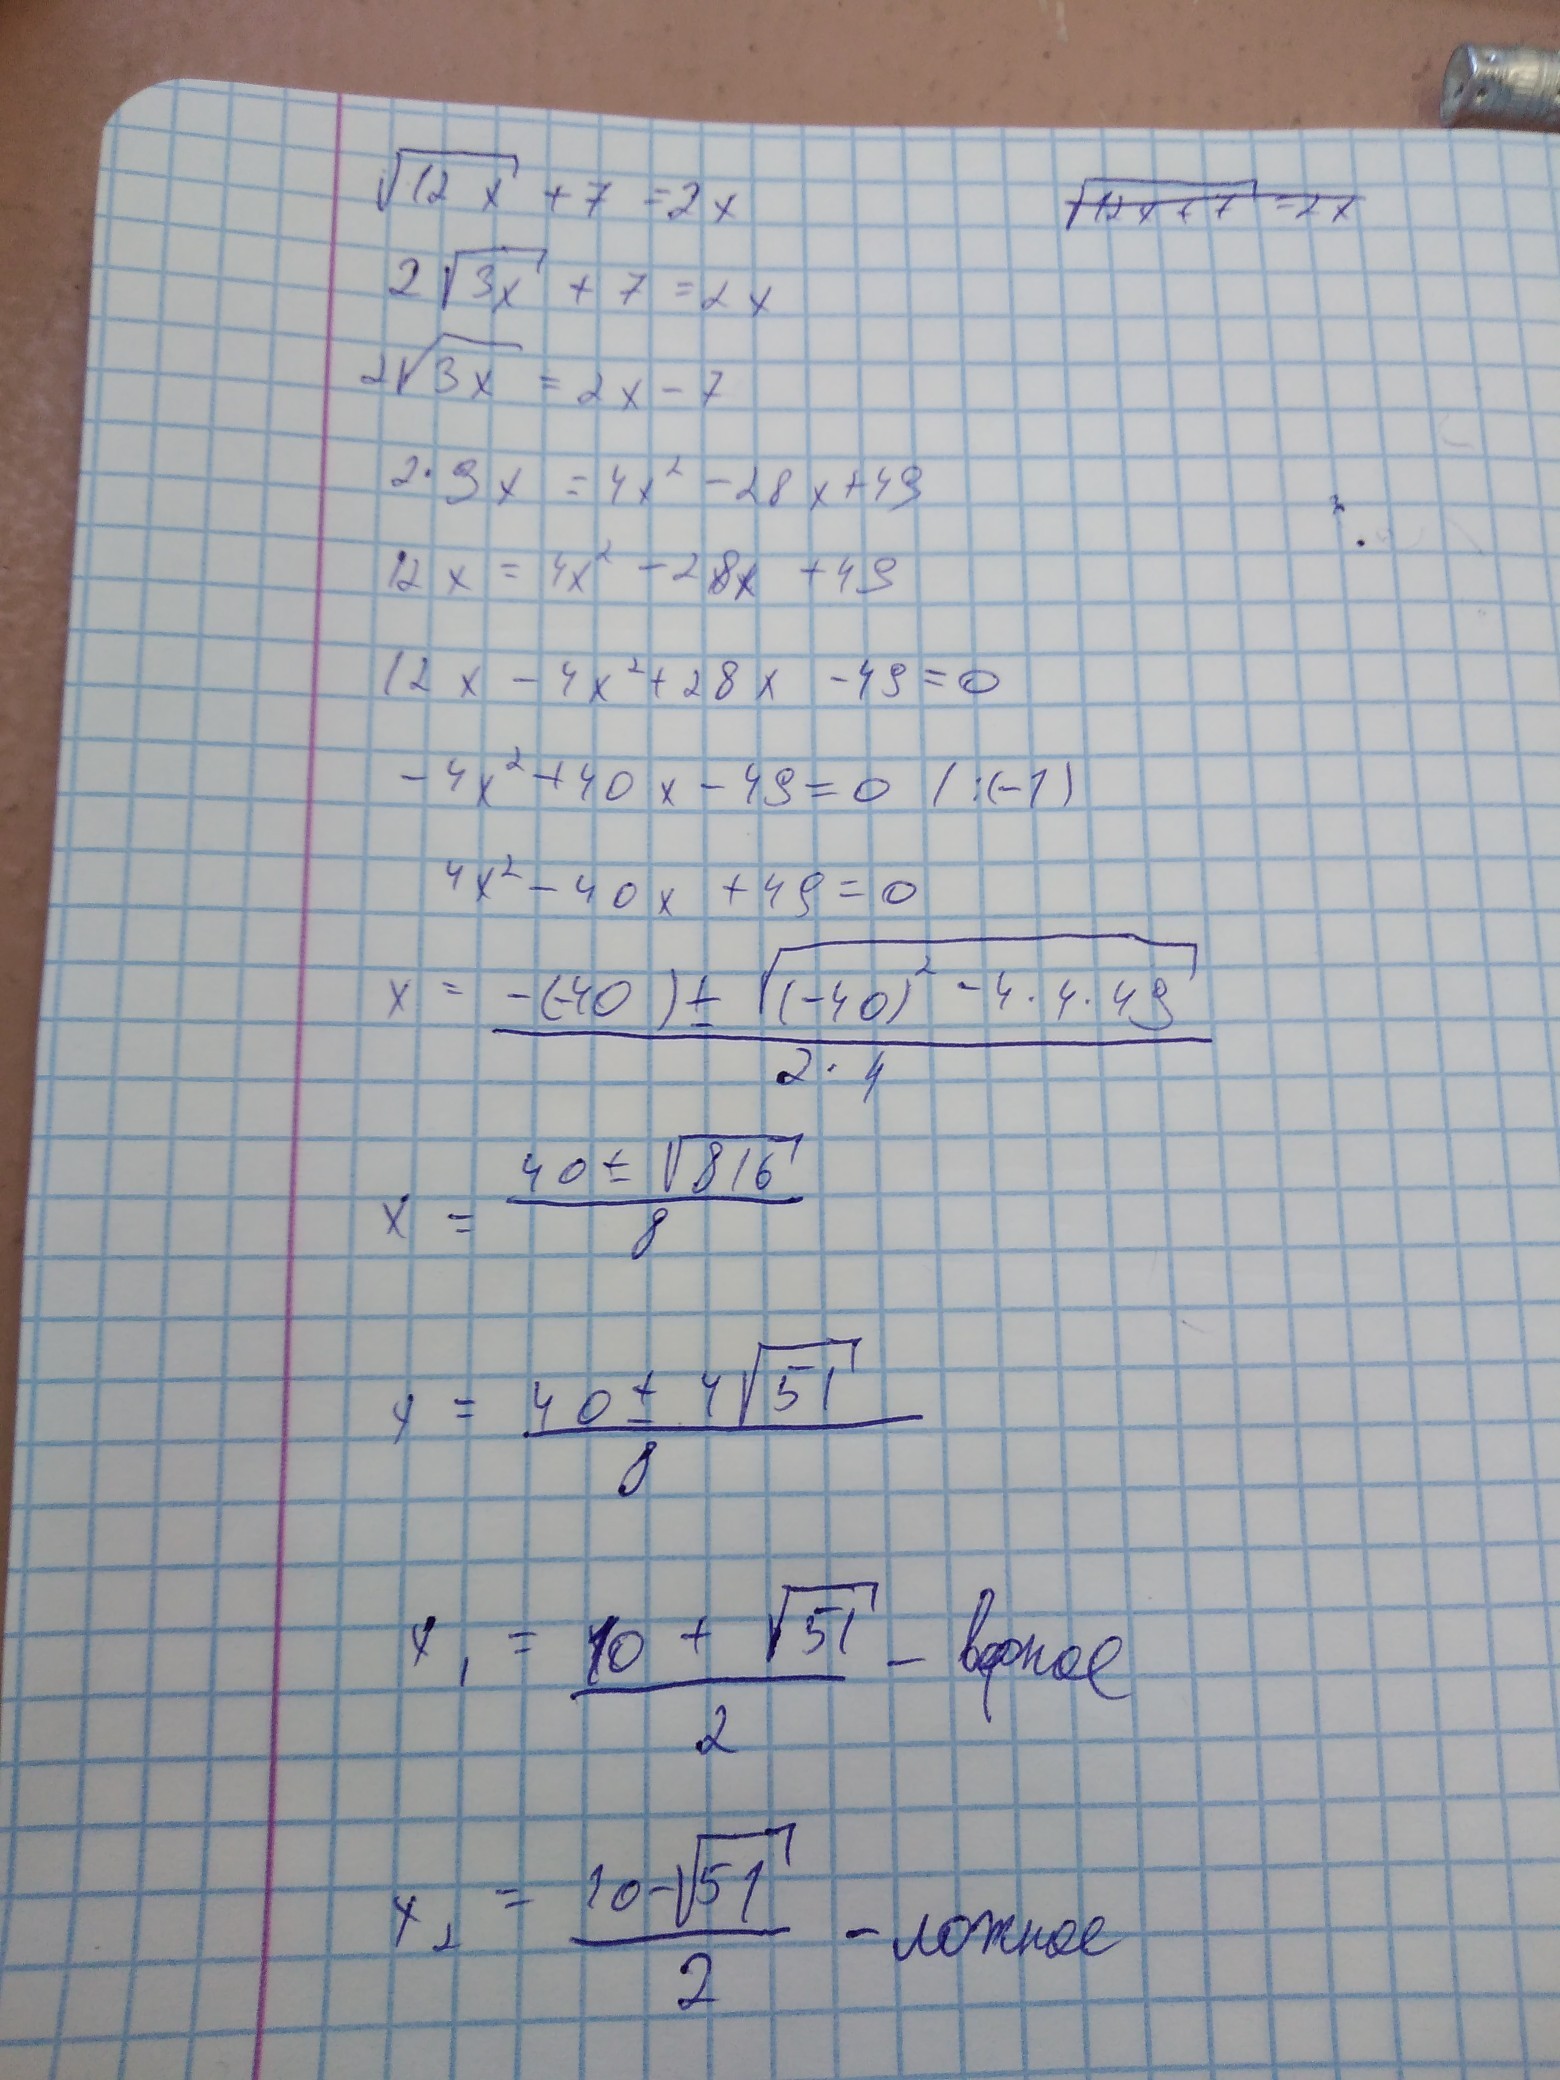 √12x + 7 = 2x
√12x + 7 = 2x
2√3x + 7 = 2x
2√3x = 2x - 7
2·3x = 4x² - 28x + 49
12x = 4x² - 28x + 49
12x - 4x² + 28x - 49 = 0
-4x² + 40x - 49 = 0 / :(-1)
4x² - 40x + 49 = 0
x = (-(-40) ± √((-40)² - 4·4·49)) / (2·4)
x = (40 ± √816) / 8
x = (40 ± 4√51) / 8
x₁ = (10 + √51) / 2 - верное
x₂ = (10 - √51) / 2 - ложное